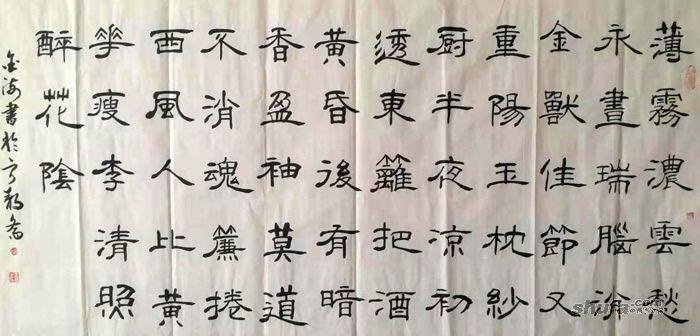 薄霧濃雲愁
永晝瑞腦
金獸佳節又
重陽玉枕紗
厨半夜涼初
透東籬把酒
黃昏後有暗
香盈袖莫道
不消魂簾捲
西風人比黃
華瘦李清照
醉花陰
金海書於齋